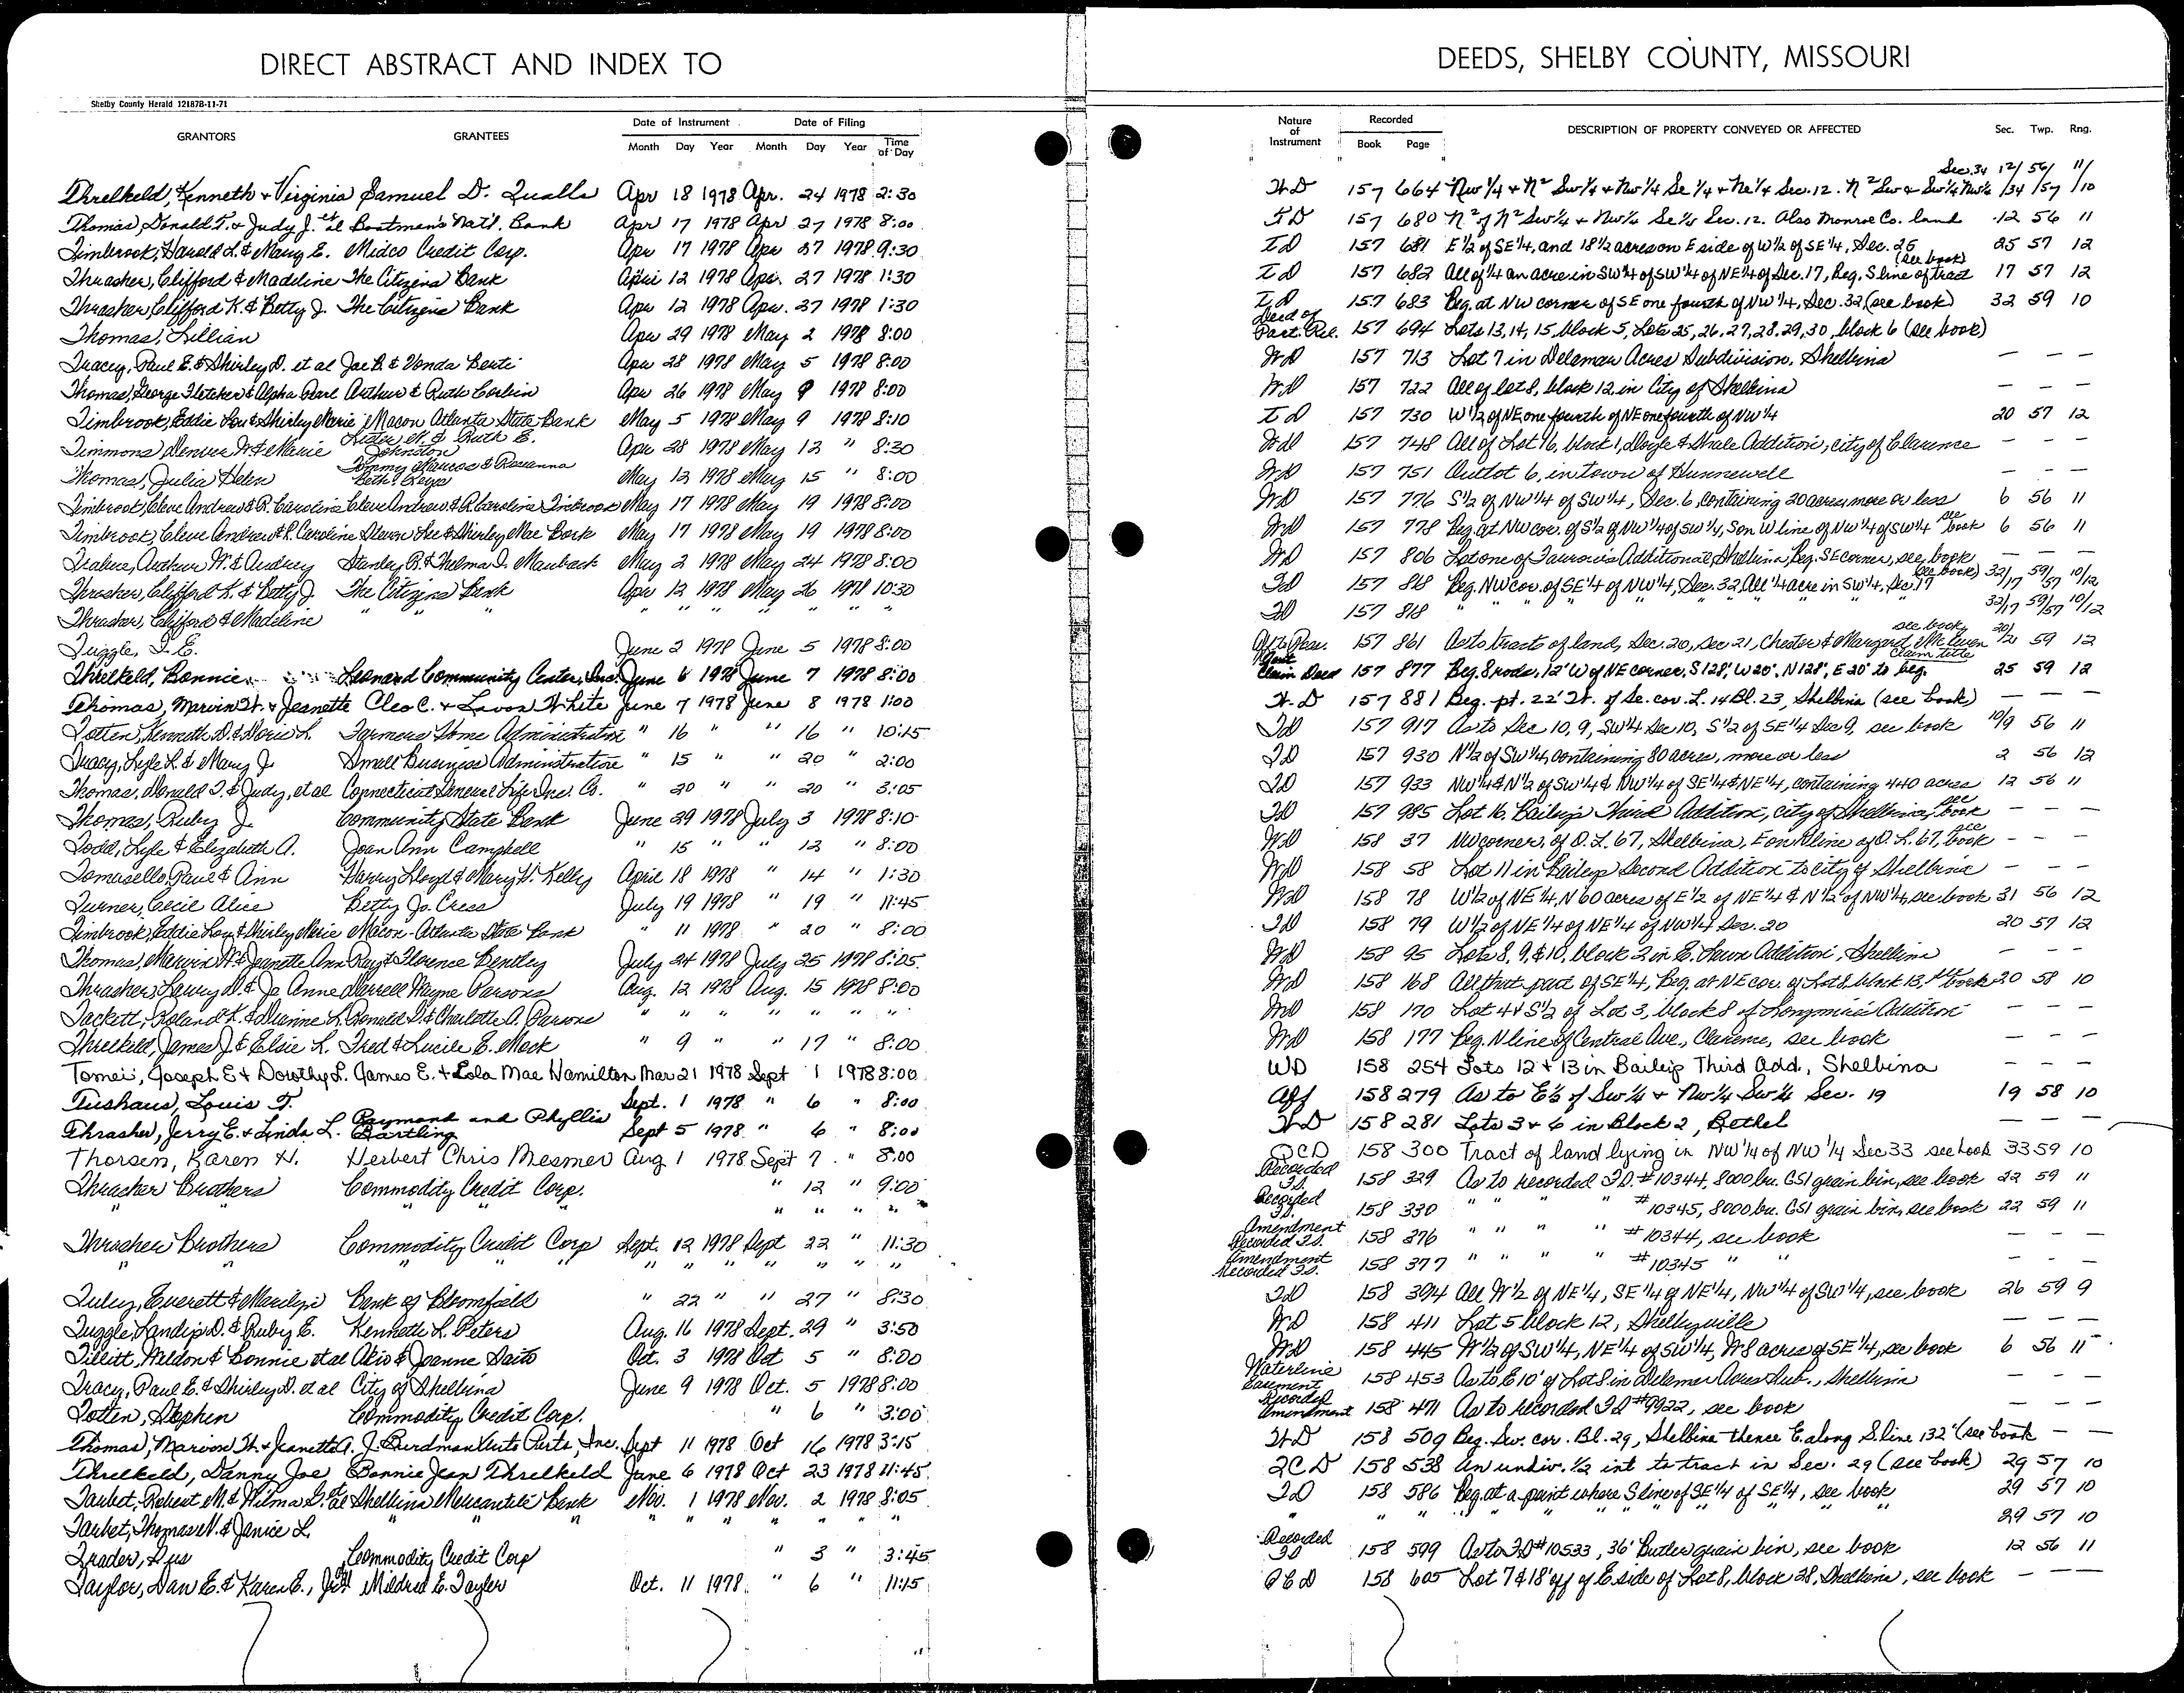 DIRECT ABSTRACT AND INDEX TO
Shelby County Herald 121878-11-71
GRANTORS GRANTEES Date of Instrument Date of Filing
Month Day Year Month Day Year Time of Day
Threlkeld, Kenneth + Virginia Samuel D. Qualls Apr 18 1978 Apr. 24 1978 2:30
Thomas, Donald T. & Judy J. et al Boatmen's Nat'l. Bank Apr 17 1978 Apr 27 1978 8:00
Timbrook, Harold L. & Mary E. Midco Credit Corp. Apr 17 1978 Apr 27 1978 9:30
Thrasher, Clifford & Madeline The Citizens Bank April 12 1978 Apr. 27 1978 1:30
Thrasher, Clifford K. & Betty J. The Citizens Bank Apr 12 1978 Apr. 27 1978 1:30
Thomas, Lillian Apr 29 1978 May 2 1978 8:00
Tracy, Paul E. & Shirley D. et al Joe B. & Vonda Berti Apr 28 1978 May 5 1978 8:00
Thomas, George Fletcher & Alpha Pearl Arthur & Ruth Corbin Apr 26 1978 May 9 1978 8:00
Timbrook, Eddie Lou & Shirley Marie Macon Atlanta State Bank May 5 1978 May 9 1978 8:10
Timmons, Denver W. & Marie Lester N. & Ruth E. Johnston Apr 28 1978 May 12 " 8:30
Thomas, Julia Helen Tommy Marcus & Roseanna Beth Keys May 12 1978 May 15 " 8:00
Timbrook, Cleve Andrew & R. Caroline Cleve Andrew & R. Caroline Timbrook May 17 1978 May 19 1978 8:00
Timbrook, Cleve Andrew & R. Caroline Steven Lee & Shirley Mae Bork May 17 1978 May 19 1978 8:00
Arthur W. & Audrey Stanley R. & Thelma J. Maubach May 2 1978 May 24 1978 8:00
Thrasher, Clifford K. & Betty J. The Citizens Bank Apr 12 1978 May 26 1978 10:30
Thrasher, Clifford & Madeline " " " " " " " "
Tuggle, T. E. June 2 1978 June 5 1978 8:00
Threlkeld, Bonnie Leonard Community Center, Inc. June 6 1978 June 7 1978 8:00
Thomas, Marvin H. + Jeanette Cleo C. + Lavon White June 7 1978 June 8 1978 1:00
Totten, Kenneth D. & Doris L. Farmers Home Administration " 16 " " 16 " 10:15
Tracy, Lyle K. & Mary J. Small Business Administration " 15 " " 20 " 2:00
Thomas, Donald T. & Judy, et al Connecticut General Life Ins. Co. " 20 " " 20 " 3:05
Thomas, Ruby J. Community State Bank June 29 1978 July 3 1978 8:10
Todd, Lyle & Elizabeth A. Joan Ann Campbell " 15 " " 12 " 8:00
Tomasello, Paul & Ann Harry Lloyd & Mary W. Kelly April 18 1978 " 14 " 1:30
Turner, Cecil Alice Betty Jo. Cress July 19 1978 " 19 " 11:45
Timbrook, Eddie Lou & Shirley Marie Macon-Atlanta State Bank " 11 1978 " 20 " 8:00
Thomas, Marvin H. & Jeanette Ann Ray & Florence Bentley July 24 1978 July 25 1978 8:05
Thrasher, Lowry D. & Jo Anne Darrell Wayne Parsons Aug. 12 1978 Aug. 15 1978 8:00
Tackett, Roland K. & Dianne L. Ronald D. & Charlotte A. Parsons " " " " " " "
Threlkeld, James J. & Elsie L. Fred & Lucile E. Mock " 9 " " 17 " 8:00
Tomei, Joseph E + Dorothy L. James E. + Lola Mae Hamilton Mar 21 1978 Sept 1 1978 8:00
Tushaus, Louis T. Sept. 1 1978 " 6 " 8:00
Thrasher, Jerry E. + Linda L. Raymond and Phyllis Bartling Sept 5 1978 " 6 " 8:00
Thorsen, Karen H. Herbert Chris Mesmer Aug 1 1978 Sept 7 " 8:00
Thrasher Brothers Commodity Credit Corp. " 12 " 9:00
" " " " " "
Thrasher Brothers Commodity Credit Corp Sept. 12 1978 Sept 22 " 11:30
" " " " " " " " " "
Tuley, Everett & Marilyn Bank of Bloomfield " 22 " " 27 " 8:30
Tuggle, Landis D. & Ruby E. Kenneth L. Peters Aug. 16 1978 Sept. 29 " 3:50
Tillitt, Weldon & Bonnie et al Akio & Joanne Saito Oct. 3 1978 Oct 5 " 8:00
Tracy, Paul E. & Shirley D. et al City of Shelbina June 9 1978 Oct. 5 1978 8:00
Totten, Stephen Commodity Credit Corp. " 6 " 3:00
Thomas, Marvin H. + Jeanette A. J. Burdman Auto Parts, Inc. Sept 11 1978 Oct 16 1978 3:15
Threlkeld, Danny Joe Bonnie Jean Threlkeld June 6 1978 Oct 23 1978 11:45
Tarbet, Robert M. & Wilma G. et al Shelbina Mercantile Bank Nov. 1 1978 Nov. 2 1978 8:05
Tarbet, Thomas N. & Janice L. " " " " " " " " "
Trader, Commodity Credit Corp " 3 " 3:45
Taylor, Dan E. & Karen E., Mildred E. Taylor Oct. 11 1978 " 6 " 11:15
DEEDS, SHELBY COUNTY, MISSOURI
Nature of Instrument Recorded Book Page DESCRIPTION OF PROPERTY CONVEYED OR AFFECTED Sec. Twp. Rng.
W.D 157 664 Nw 1/4 + N 2 Sw 1/4 + Nw 1/4 Se 1/4 + Ne 1/4 Sec. 12. N 2 Sw & Sw 1/4 Nw 1/4 Sec. 34 12/34 56/57 11/10
T D 157 680 N 2 of N 2 Sw 1/4 + Nw 1/4 Se 1/4 Sec. 12. Also Monroe Co. land 12 56 11
T D 157 681 E 1/2 of SE 1/4, and 18 1/2 acres on E side of W 1/2 of SE 1/4, Sec. 25 25 57 12
T D 157 682 All of 1/4 an acre in SW 1/4 of SW 1/4 of NE 1/4 of Sec. 17, Beg. S line of tract (see book) 17 57 12
T.D 157 683 Beg. at NW corner of SE one fourth of NW 1/4, Sec. 32, (see book) 32 59 10
Deed of Part. Rel. 157 694 Lots 13, 14, 15, block 5, Lots 25, 26, 27, 28, 29, 30, block 6 (see book)
WD 157 713 Lot 7 in Delamar Acres Subdivision, Shelbina — — —
WD 157 722 All of lot 8, block 12, in City of Shelbina — — —
T D 157 730 W 1/2 of NE one fourth of NE one fourth of NW 1/4 20 57 12
WD 157 748 All of Lot 16, block 1, Doyle & Shale Addition, city of Clarence — — —
WD 157 751 Outlot 6, in town of Hunnewell — — —
WD 157 776 S 1/2 of NW 1/4 of SW 1/4, Sec. 6, containing 20 acres more or less 6 56 11
WD 157 778 Beg. at NW cor. of S 1/2 of NW 1/4 of SW 1/4, S on W line of NW 1/4 of SW 1/4 see book 6 56 11
WD 157 806 Lot one of Additional, Shelbina, Beg. SE corner, see book — — —
TD 157 818 Beg. NW cor. of SE 1/4 of NW 1/4, Sec. 32, All 1/4 acre in SW 1/4, Sec. 17 (see book) 32/17 59/57 10/12
TD 157 818 " " " " " " 32/17 59/57 10/12
157 861 As to tracts of land, Sec. 20, Sec 21, Chester & Margaret McEwen claim title see book 20/21 59 12
Quit Claim Deed 157 877 Beg. 8 rods, 12' W of NE corner, S 128', W 20', N 128', E 20' to beg. 25 59 12
W.D 157 881 Beg. pt. 22' W. of Se. cor. L. 14 Bl. 23, Shelbina (see book) — — —
TD 157 917 As to Sec 10, 9, SW 1/4 Sec 10, S 1/2 of SE 1/4 Sec 9, see book 10/9 56 11
TD 157 930 N 1/2 of SW 1/4, containing 80 acres, more or less 2 56 12
TD 157 933 NW 1/4 & N 1/2 of SW 1/4 & NW 1/4 of SE 1/4 & NE 1/4, containing 440 acres 12 56 11
TD 157 985 Lot 16, Bailey's Third Addition, City of Shelbina, see book — — —
WD 158 37 NW corner, of O.L. 67, Shelbina, E on N line of O.L. 67, see book — — —
WD 158 58 Lot 11 in Baileys Second Addition to city of Shelbina — — —
WD 158 78 W 1/2 of NE 1/4, N 60 acres of E 1/2 of NE 1/4 & N 1/2 of NW 1/4, see book 31 56 12
TD 158 79 W 1/2 of NE 1/4 of NE 1/4 of NW 1/4 Sec. 20 20 57 12
WD 158 95 Lots 8, 9, & 10, block 2 in E. Lawn Addition, Shelbina — — —
WD 158 168 All that part of SE 1/4, Beg. at NE cor. of Lot 8, block 13, see book 20 58 10
WD 158 170 Lot 4 & S 1/2 of Lot 3, block 8 of Longmire's Addition — — —
WD 158 177 Beg. N line of Central Ave., Clarence, see book — — —
WD 158 254 Lots 12 + 13 in Baileys Third Add., Shelbina — — —
Aff 158 279 As to E 1/2 of Sw 1/4 + Nw 1/4 Sw 1/4 Sec. 19 19 58 10
W.D 158 281 Lots 3 + 6 in Block 2, Bethel — — —
QCD 158 300 Tract of land lying in NW 1/4 of NW 1/4 Sec 33 see book 33 59 10
Recorded F.S. 158 329 As to recorded F.S. #10344, 8000 bu. GSI grain bin, see book 22 59 11
Recorded F.S. 158 330 " " " " #10345, 8000 bu. GSI grain bin, see book 22 59 11
Amendment Recorded F.S. 158 376 " " " " #10344, see book — — —
Amendment Recorded F.S. 158 377 " " " " #10345 " " — —
TD 158 394 All W 1/2 of NE 1/4, SE 1/4 of NE 1/4, NW 1/4 of SW 1/4, see book 26 59 9
WD 158 411 Lot 5 block 12, Shelbyville — — —
WD 158 445 W 1/2 of SW 1/4, NE 1/4 of SW 1/4, W 8 acres of SE 1/4, see book 6 56 11
Waterline Easement 158 453 As to E 10' of Lot 8 in Delamar Acres Sub., Shelbina — — —
Recorded Amendment 158 471 As to recorded FS #9922, see book — — —
W.D 158 509 Beg. Sw. cor. Bl. 29, Shelbina thence E. along S. line 132' (see book — —
QCD 158 538 An undiv. 1/2 int to tract in Sec. 29 (see book) 29 57 10
TD 158 586 Beg. at a point where S line of SE 1/4 of SE 1/4, see book 29 57 10
" " " " " " " " " 29 57 10
Recorded FS 158 599 As to FS #10533, 36' Butler grain bin, see book 12 56 11
QCD 158 605 Lot 7 & 18' off of E side of Lot 8, block 28, Shelbina, see book — — —